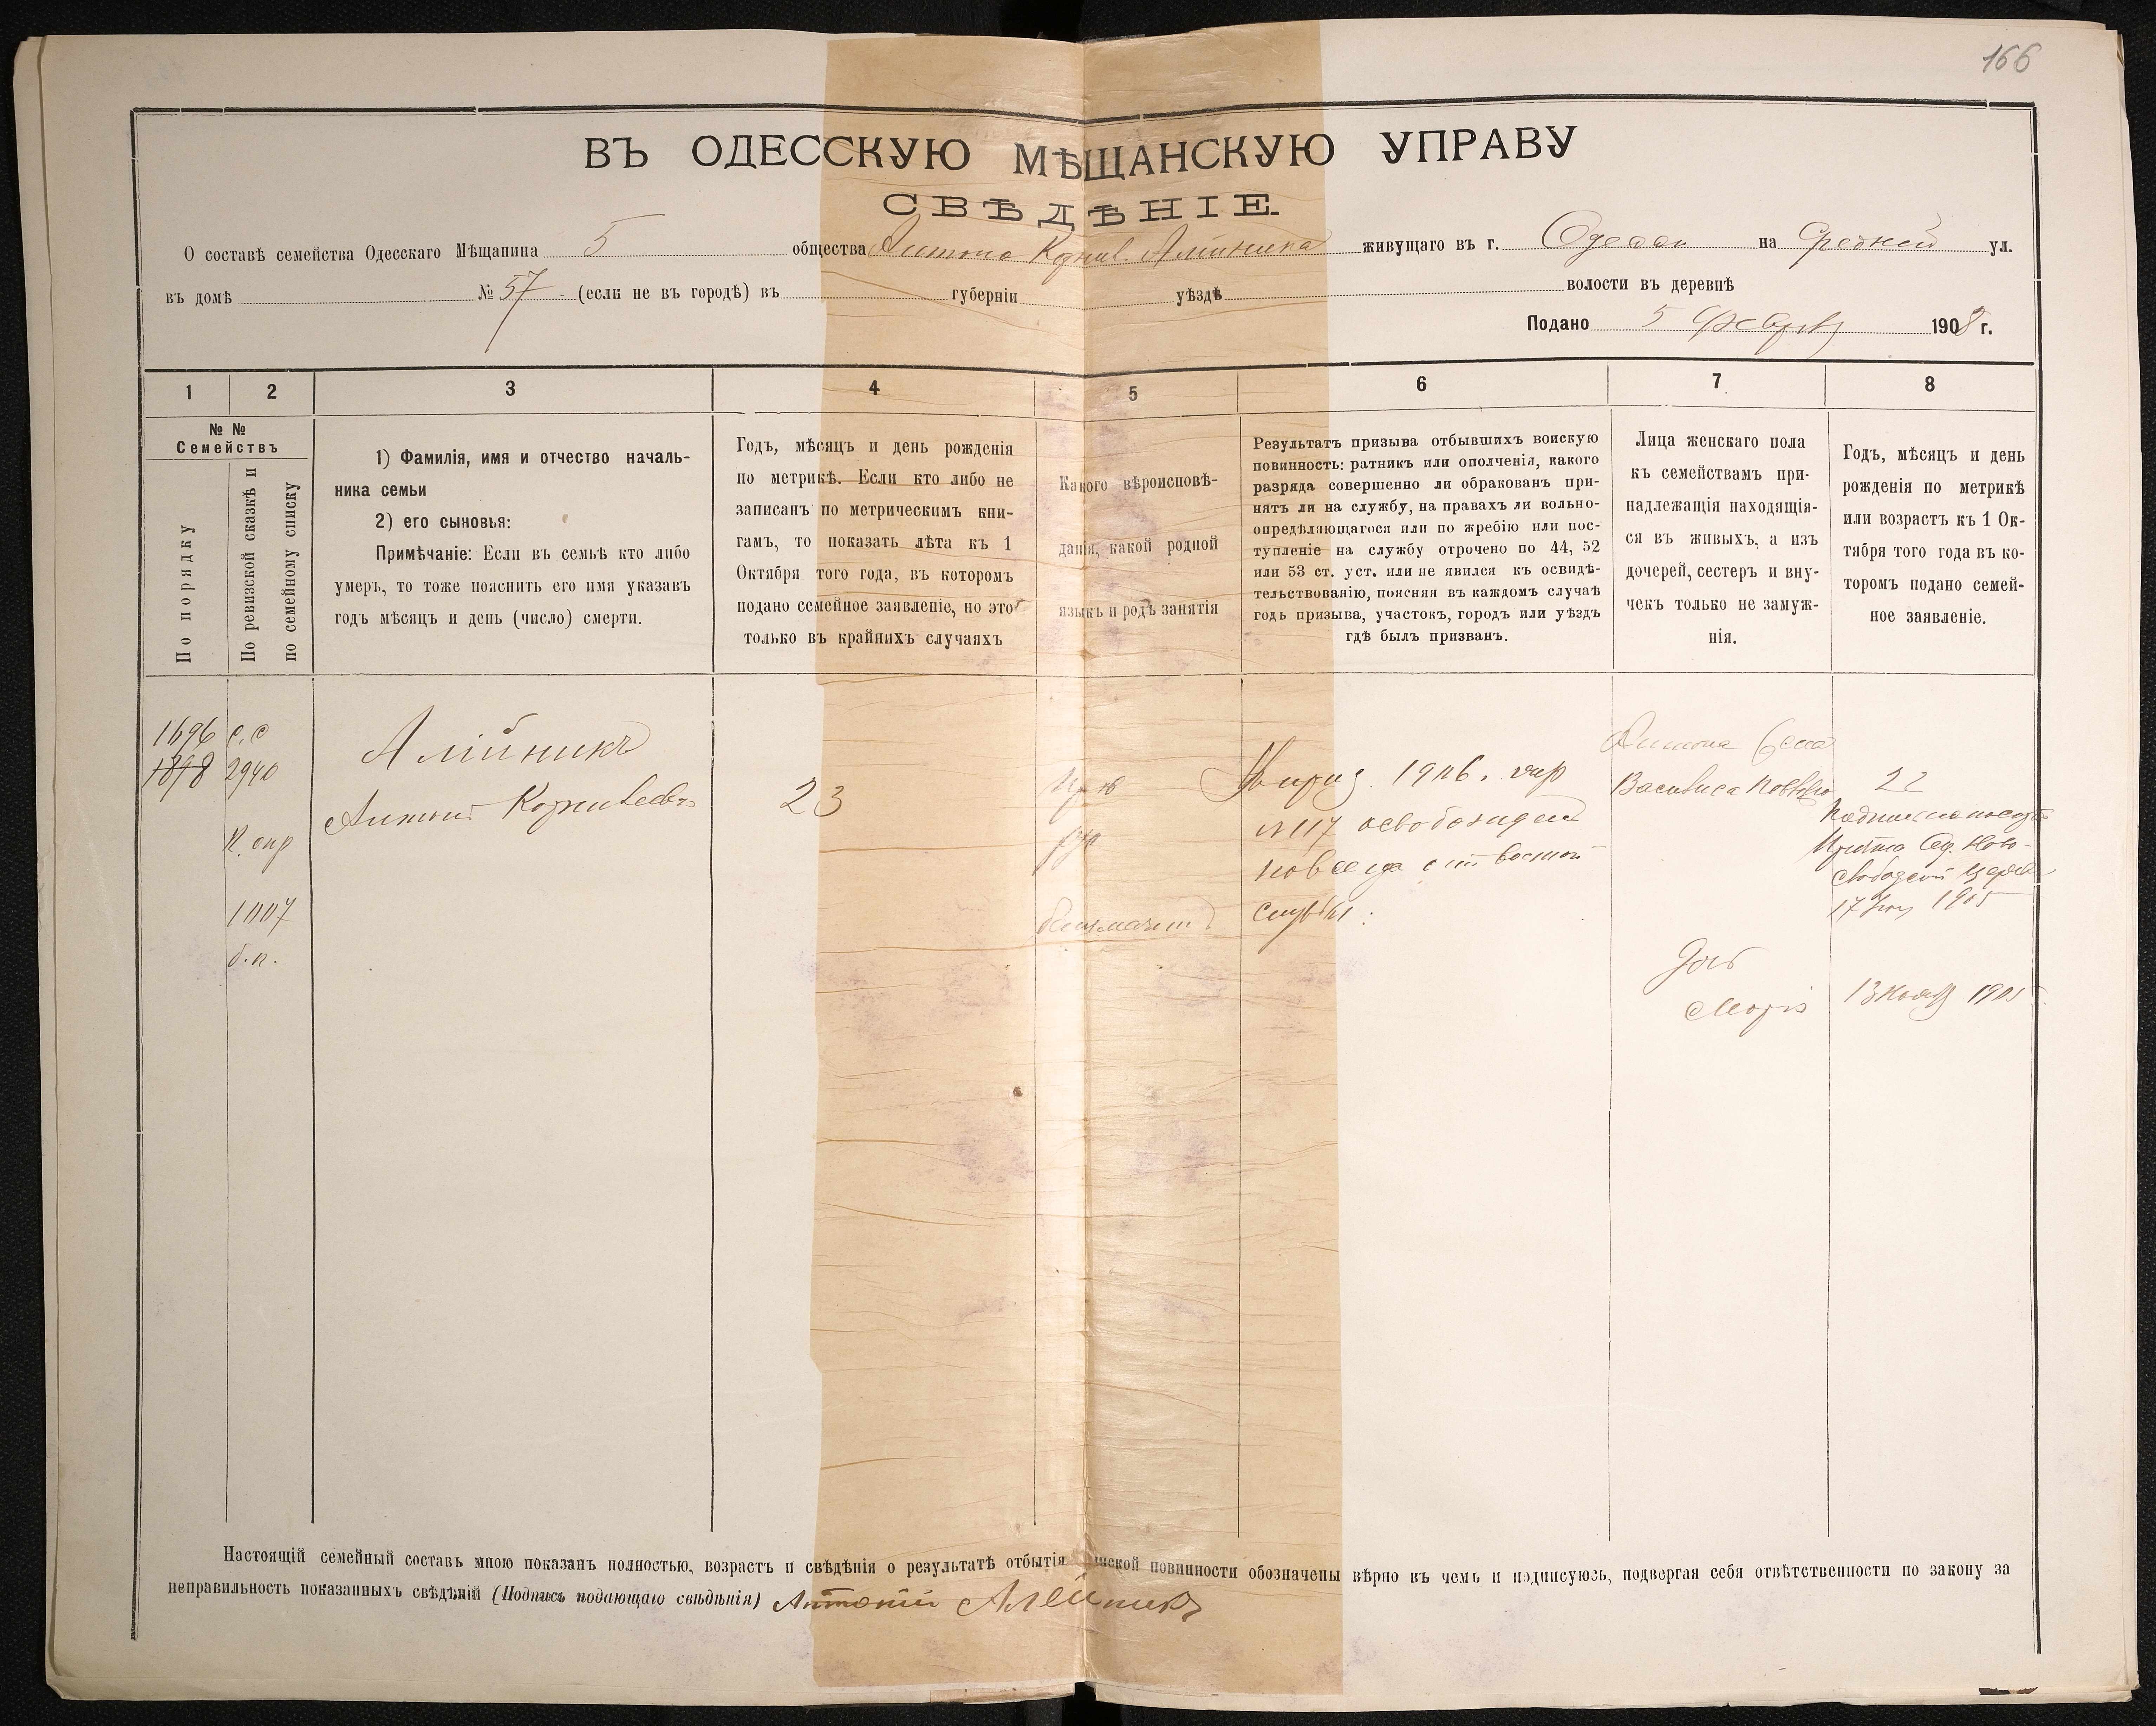 166
ВЪ ОДЕССКУЮ МѢЩАНСКУЮ УПРАВУ
СВѢДѢНІЕ.
О составѣ семейства Одесскаго Мѣщанина 5 общества Антона Корнил. Алійника живущаго въ г. Одессѣ на Средней ул.
въ домѣ № 57 (если не въ городѣ) въ губерніи уѣздѣ волости въ деревнѣ
Подано 5 Февр 1908 г.
1 2 3 4 5 6 7 8
№ №
Семействъ
По порядку
По ревизской сказкѣ и
по семейному списку
1) Фамилія, имя и отчество началь-
ника семьи
2) его сыновья:
Примѣчаніе: Если въ семьѣ кто либо
умеръ, то тоже пояснить его имя указавъ
годъ мѣсяцъ и день (число) смерти.
Годъ, мѣсяцъ и день рожденія
по метрикѣ. Если кто либо не
записанъ по метрическимъ кни-
гамъ, то показать лѣта къ 1
Октября того года, въ которомъ
подано семейное заявленіе, но это
только въ крайнихъ случаяхъ
Какого вѣроисповѣ-
данія, какой родной
языкъ и родъ занятія
Результатъ призыва отбывшихъ воискую
повинность: ратникъ или ополченія, какого
разряда совершенно ли обракованъ при-
нятъ ли на службу, на правахъ ли вольно-
опредѣляющагося или по жребію или пос-
тупленіе на службу отрочено по 44, 52
или 53 ст. уст. или не явился къ освидѣ-
тельствованію, поясняя въ каждомъ случаѣ
годъ призыва, участокъ, городъ или уѣздъ
гдѣ былъ призванъ.
Лица женскаго пола
къ семействамъ при-
надлежащія находящія-
ся въ живыхъ, а изъ
дочерей, сестеръ и вну-
чекъ только не замуж-
нія.
Годъ, мѣсяцъ и день
рожденія по метрикѣ
или возрастъ къ 1 Ок-
тября того года въ ко-
торомъ подано семей-
ное заявленіе.
1696 с.с
1898 2940
1007
б.п.
Алійникъ
Антонъ Корниліевъ
23
Прав
рус
Въ приз. 1906. жир
№ 117 освобожден
навсегда отъ воен
службы.
Антона жена
Василиса Павлова
22
17 1905
Дочь
Марія
13 Нояб 1905
Настоящій семейный составъ мною показанъ полностью, возрастъ и свѣдѣнія о результатѣ отбытія инской повинности обозначены вѣрно въ чемъ и подписуюсь, подвергая себя отвѣтственности по закону за
неправильность показанныхъ свѣдѣній (Подпись подающаго свѣдѣнія) Антоній Алейникъ